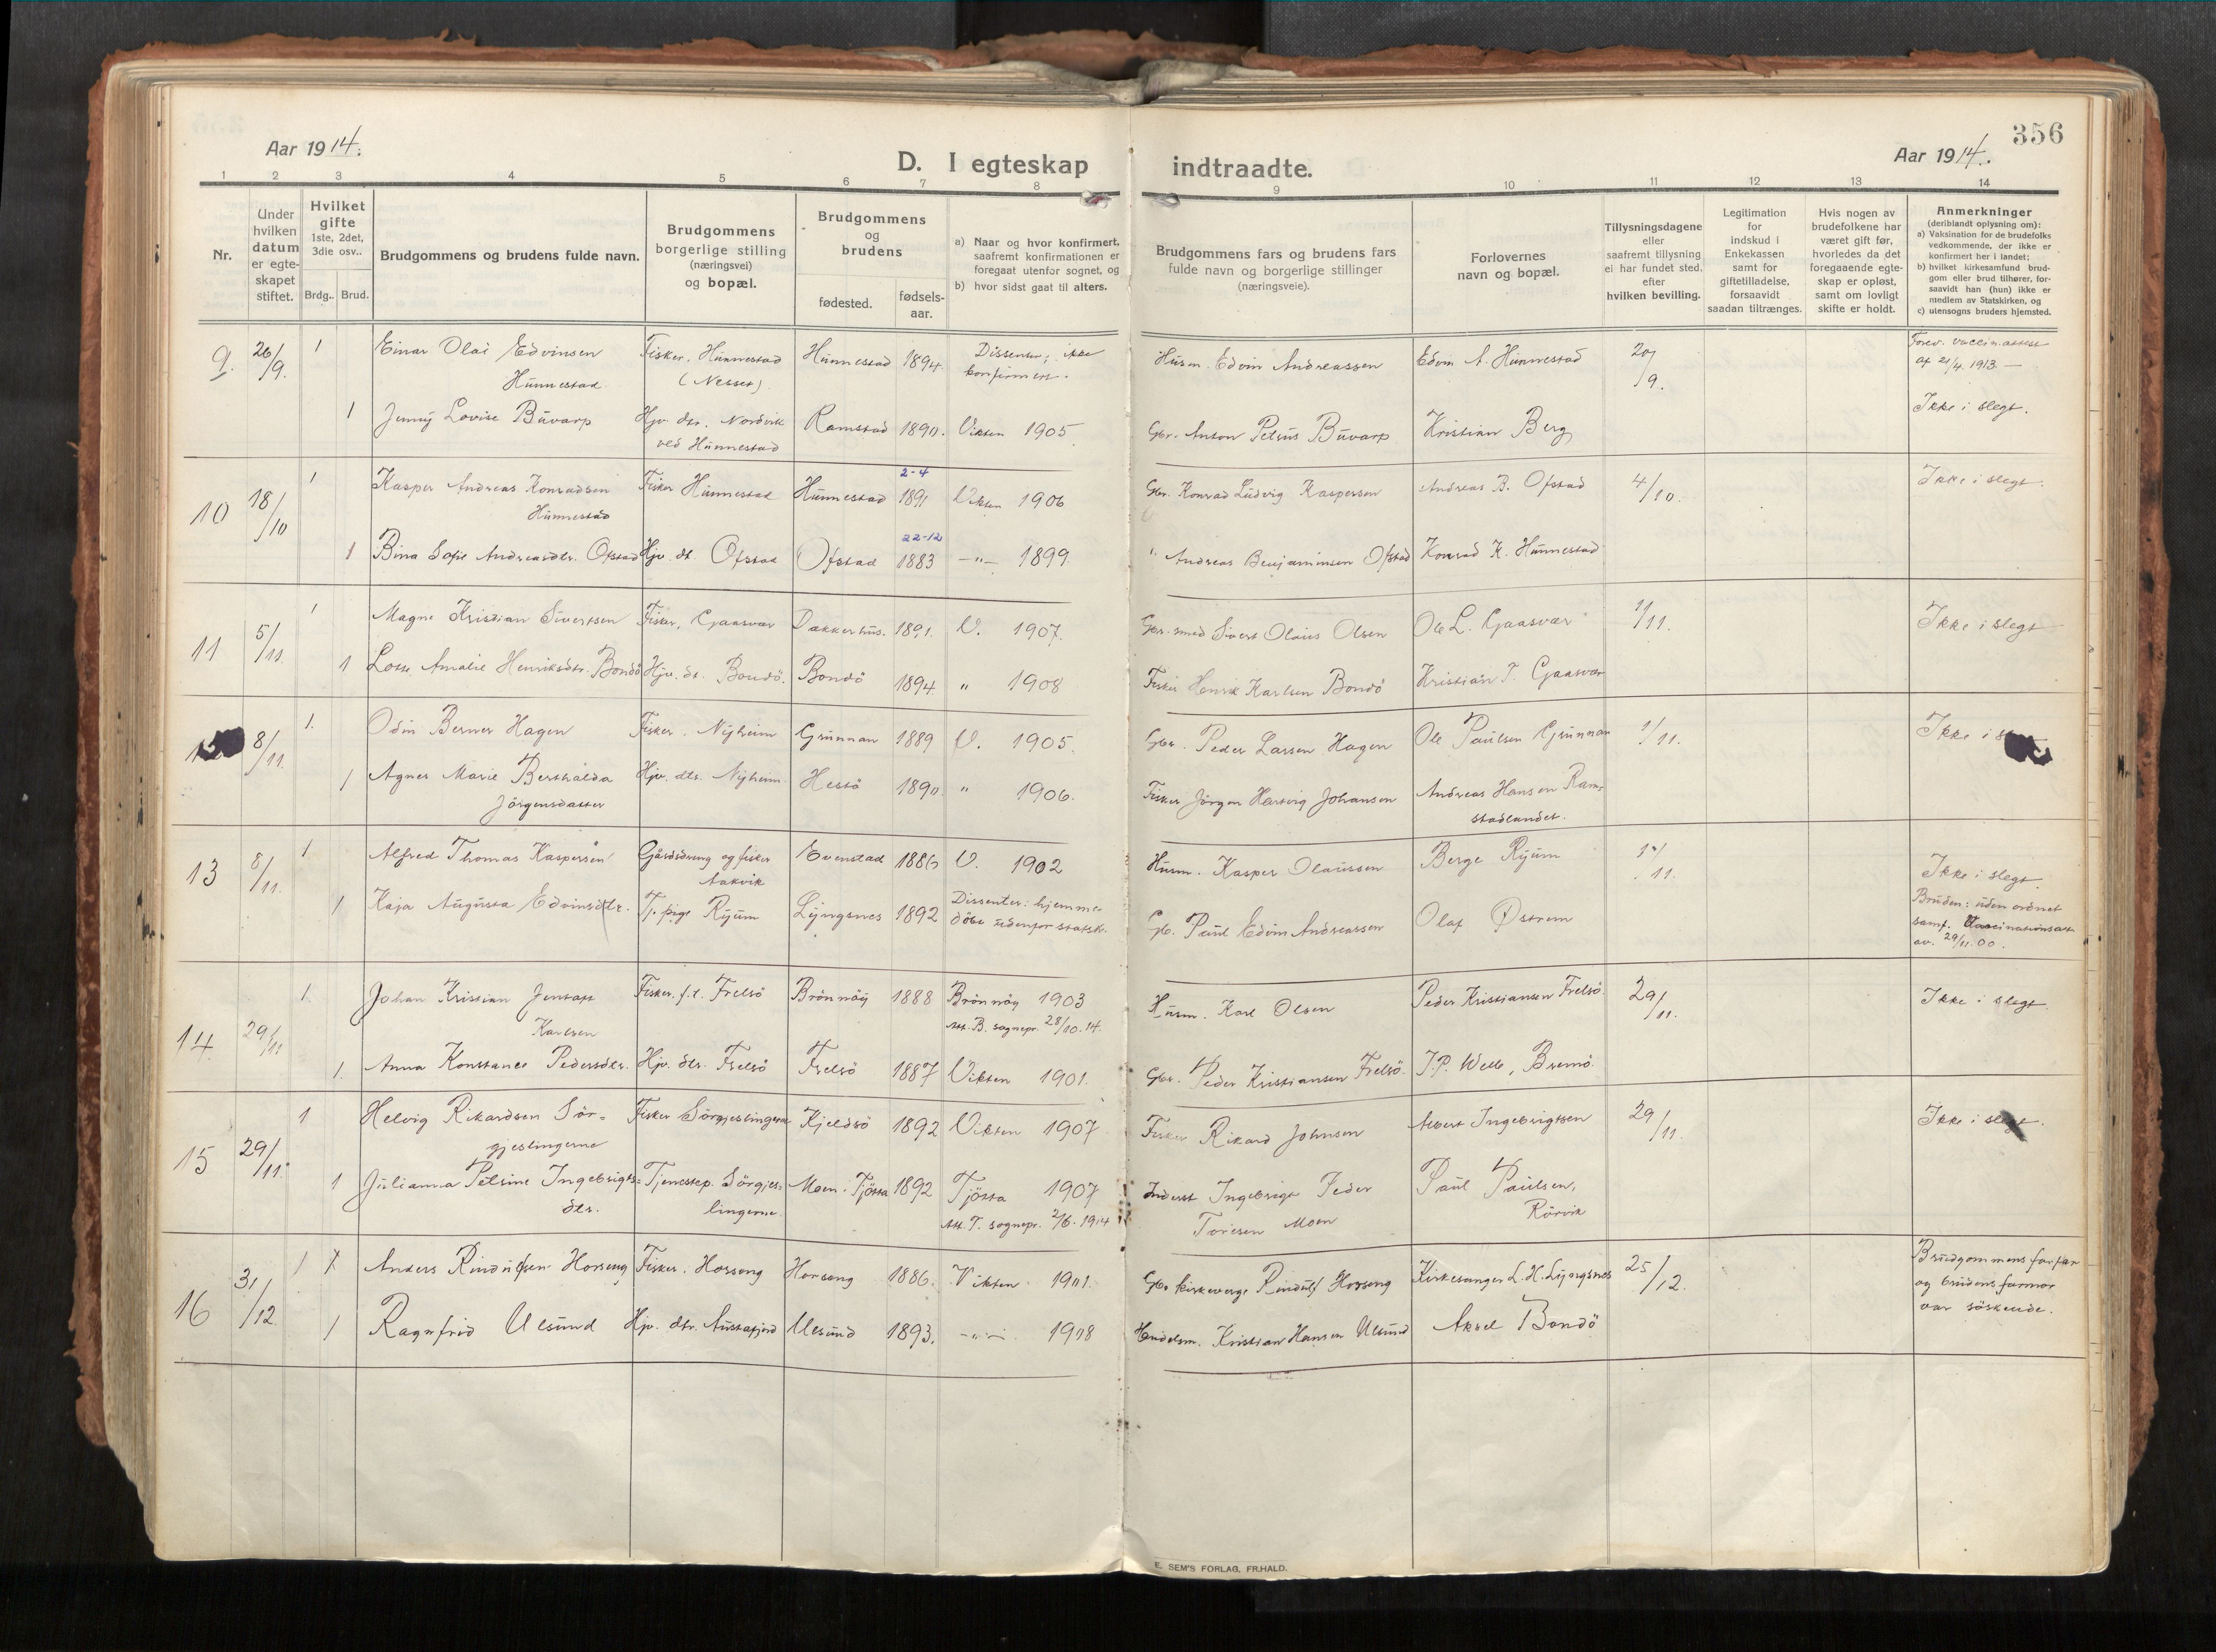 356
Aar 1914.
Aar 1914.
D. I egteskap indtraadte.
1 2 3 4 5 6 7 8 9 10 11 12 13 14
Nr.
Under hvilken datum er egte-skapet stiftet.
Hvilket gifte 1ste, 2det, 3die osv..
Brdg.. Brud.
Brudgommens og brudens fulde navn.
Brudgommens borgerlige stilling (næringsvei) og bopæl.
Brudgommens og brudens
fødested.
fødsels-aar.
a) Naar og hvor konfirmert, saafremt konfirmationen er foregaat utenfor sognet, og
b) hvor sidst gaat til alters.
Brudgommens fars og brudens fars fulde navn og borgerlige stillinger (næringsveie).
Forlovernes navn og bopæl.
Tillysningsdagene eller saafremt tillysning ei har fundet sted. efter hvilken bevilling.
Legitimation for indskud i Enkekassen samt for giftetilladelse, forsaavidt saadan tiltrænges.
Hvis nogen av brudefolkene har været gift før, hvorledes da det foregaaende egte-skap er opløst, samt om lovligt skifte er holdt.
Anmerkninger (deriblandt oplysning om):
a) Vaksination for de brudefolks vedkommende, der ikke er konfirmert her i landet;
b) hvilket kirkesamfund brud-gom eller brud tilhører, for-saavidt han (hun) ikke er medlem av Statskirken, og
c) utensogns bruders hjemsted.
9. 26/9. 1 Einar Olai Edvinsen Fisker, Hunnestad Hunnestad 1894. Dissenter; ikke Husm. Edvin Andreassen Edvin A. Hunnestad 20/9. Forev. vaccin.attest
Hunnestad (Nesset) konfirmert. af 21/4. 1913. —
1 Jenny Lovise Buvarp Hjv. dtr. Nordvik Ramstad 1890. Vikten 1905 Gbr. Anton Petrus Buvarp Kristian Berg Ikke i slegt.
ved Hunnestad
2-4
10 18/10 1 Kasper Andreas Konradsen Fisker Hunnestad Hunnestad 1891 Vikten 1906 Gbr. Konrad Ludvig Kaspersen Andreas B. Ofstad 4/10. Ikke i slegt.
Hunnestad
22-12
1 Bina Sofie Andreasdtr. Ofstad Hjv. dt. Ofstad Ofstad 1883 -"- 1899. " Andreas Benjaminsen Ofstad Konrad K. Hunnestad
11 5/11. 1 Magne Kristian Sivertsen Fisker, Gaasvær Dakkerhus. 1891. V. 1907. Gbr. smed Sivert Olaus Olsen Ole L. Gaasvær 1/11. Ikke i slegt
1 Amalie Henriksdtr. Bondö Hjv. dt. Bondö. Bondö 1894 " 1908 Fisker Henrik Karlsen Bondö Kristian T. Gaasvær
8/11. 1. Odin Berner Hagen Fisker. Nyheim Grunnan 1889 V. 1905. Gbr. Peder Larsen Hagen Ole Paulsen Grunnan 1/11. Ikke i
1 Agnes Marie Berthalda Hjv. dtr. Nyheim Hestö 1890 " 1906. Fisker Jörgen Hartvig Johansen Andreas Hansen Ram-
Jörgensdatter stadlandet.
13 8/11. 1 Alfred Thomas Kaspersen Gårdsdreng og fisker Evenstad 1886 V. 1902 Husm. Kasper Olaussen Berge Ryum 1/11. Ikke i slegt.
Aakvik
1 Kaja Augusta Edvinsdtr. Tj. pige Ryum Lyngsnes 1892 Dissenter: hjemme- Gb. Paul Edvin Andreassen Olaf Østrem Bruden: uden ordnet
döbt udenfor statsk. samf. Vaccinationsatt.
av. 29/11.00.
14 29/11 1. Johan Kristian Jentoft Fisker. f.t. Frelsö Brönnöy 1888 Brönnöy 1903 Husm. Karl Olsen Peder Kristiansen Frelsö. 29/11. Ikke i slegt.
Karlsen Att. B. sognepr. 28/10.14.
1. Anna Konstance Pedersdtr. Hjv. dtr. Frelsö Frelsö 1887 Vikten 1901. Gbr. Peder Kristiansen Frelsö. J.P. Welle, Bremö.
15 29/11. 1 Helvig Rikardsen Sör- Fisker Sörgjeslingerne Kjeldsö 1892 Vikten 1907 Fisker Rikard Johnsen Albert Ingebrigtsen 29/11. Ikke i slegt.
gjeslingerne
1 Julianna Petrine Ingebrigts- Tjenestep. Sörgjes- Moen. Tjötta 1892 Tjötta 1907 Inderst Ingebrigt Peder Paul Paulsen,
dtr. lingerne. Att. T. sognepr. 2/6. 1914 Toresen Moen Rörvik
16 31/12. 1 Anders Rindulfsen Horseng Fisker. Horseng Horseng 1886. Vikten. 1901. Gbr. kirkeverge Rindulf Horseng Kirkesanger L. H. Lyngsnes 25/12. Brudgommens farfar
og brudens farmor
1 Ragnfrid Ulsund Hjv. dtr. Austafjord Ulsund 1893. -"- 1908 Handelsm. Kristian Hansen Ulsund Aksel Bondö var söskende.
E. SEM'S FORLAG, FR.HALD.